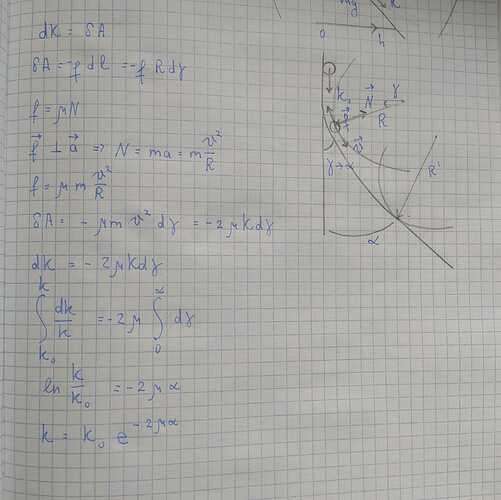 dK = δA
δA = -f dl = -f R dγ
f = μN
f⃗ ⊥ a⃗ ⇒ N = ma = m v²/R
f = μ m v²/R
δA = - μm v² dγ = -2μKdγ
dK = - 2μKdγ
∫_{K₀}^{K} dK/K = -2μ ∫_{0}^{α} dγ
ln K/K₀ = -2μα
K = K₀ e^{-2μα}
mg
0
h
K₀
N⃗
γ
R
f⃗
v⃗
γ→α
R'
α